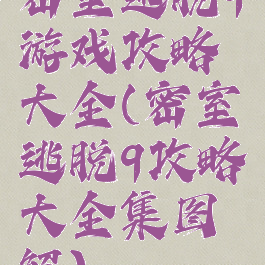 密室逃脱9
游戏攻略
大全(密室
逃脱9攻略
大全集图
解)